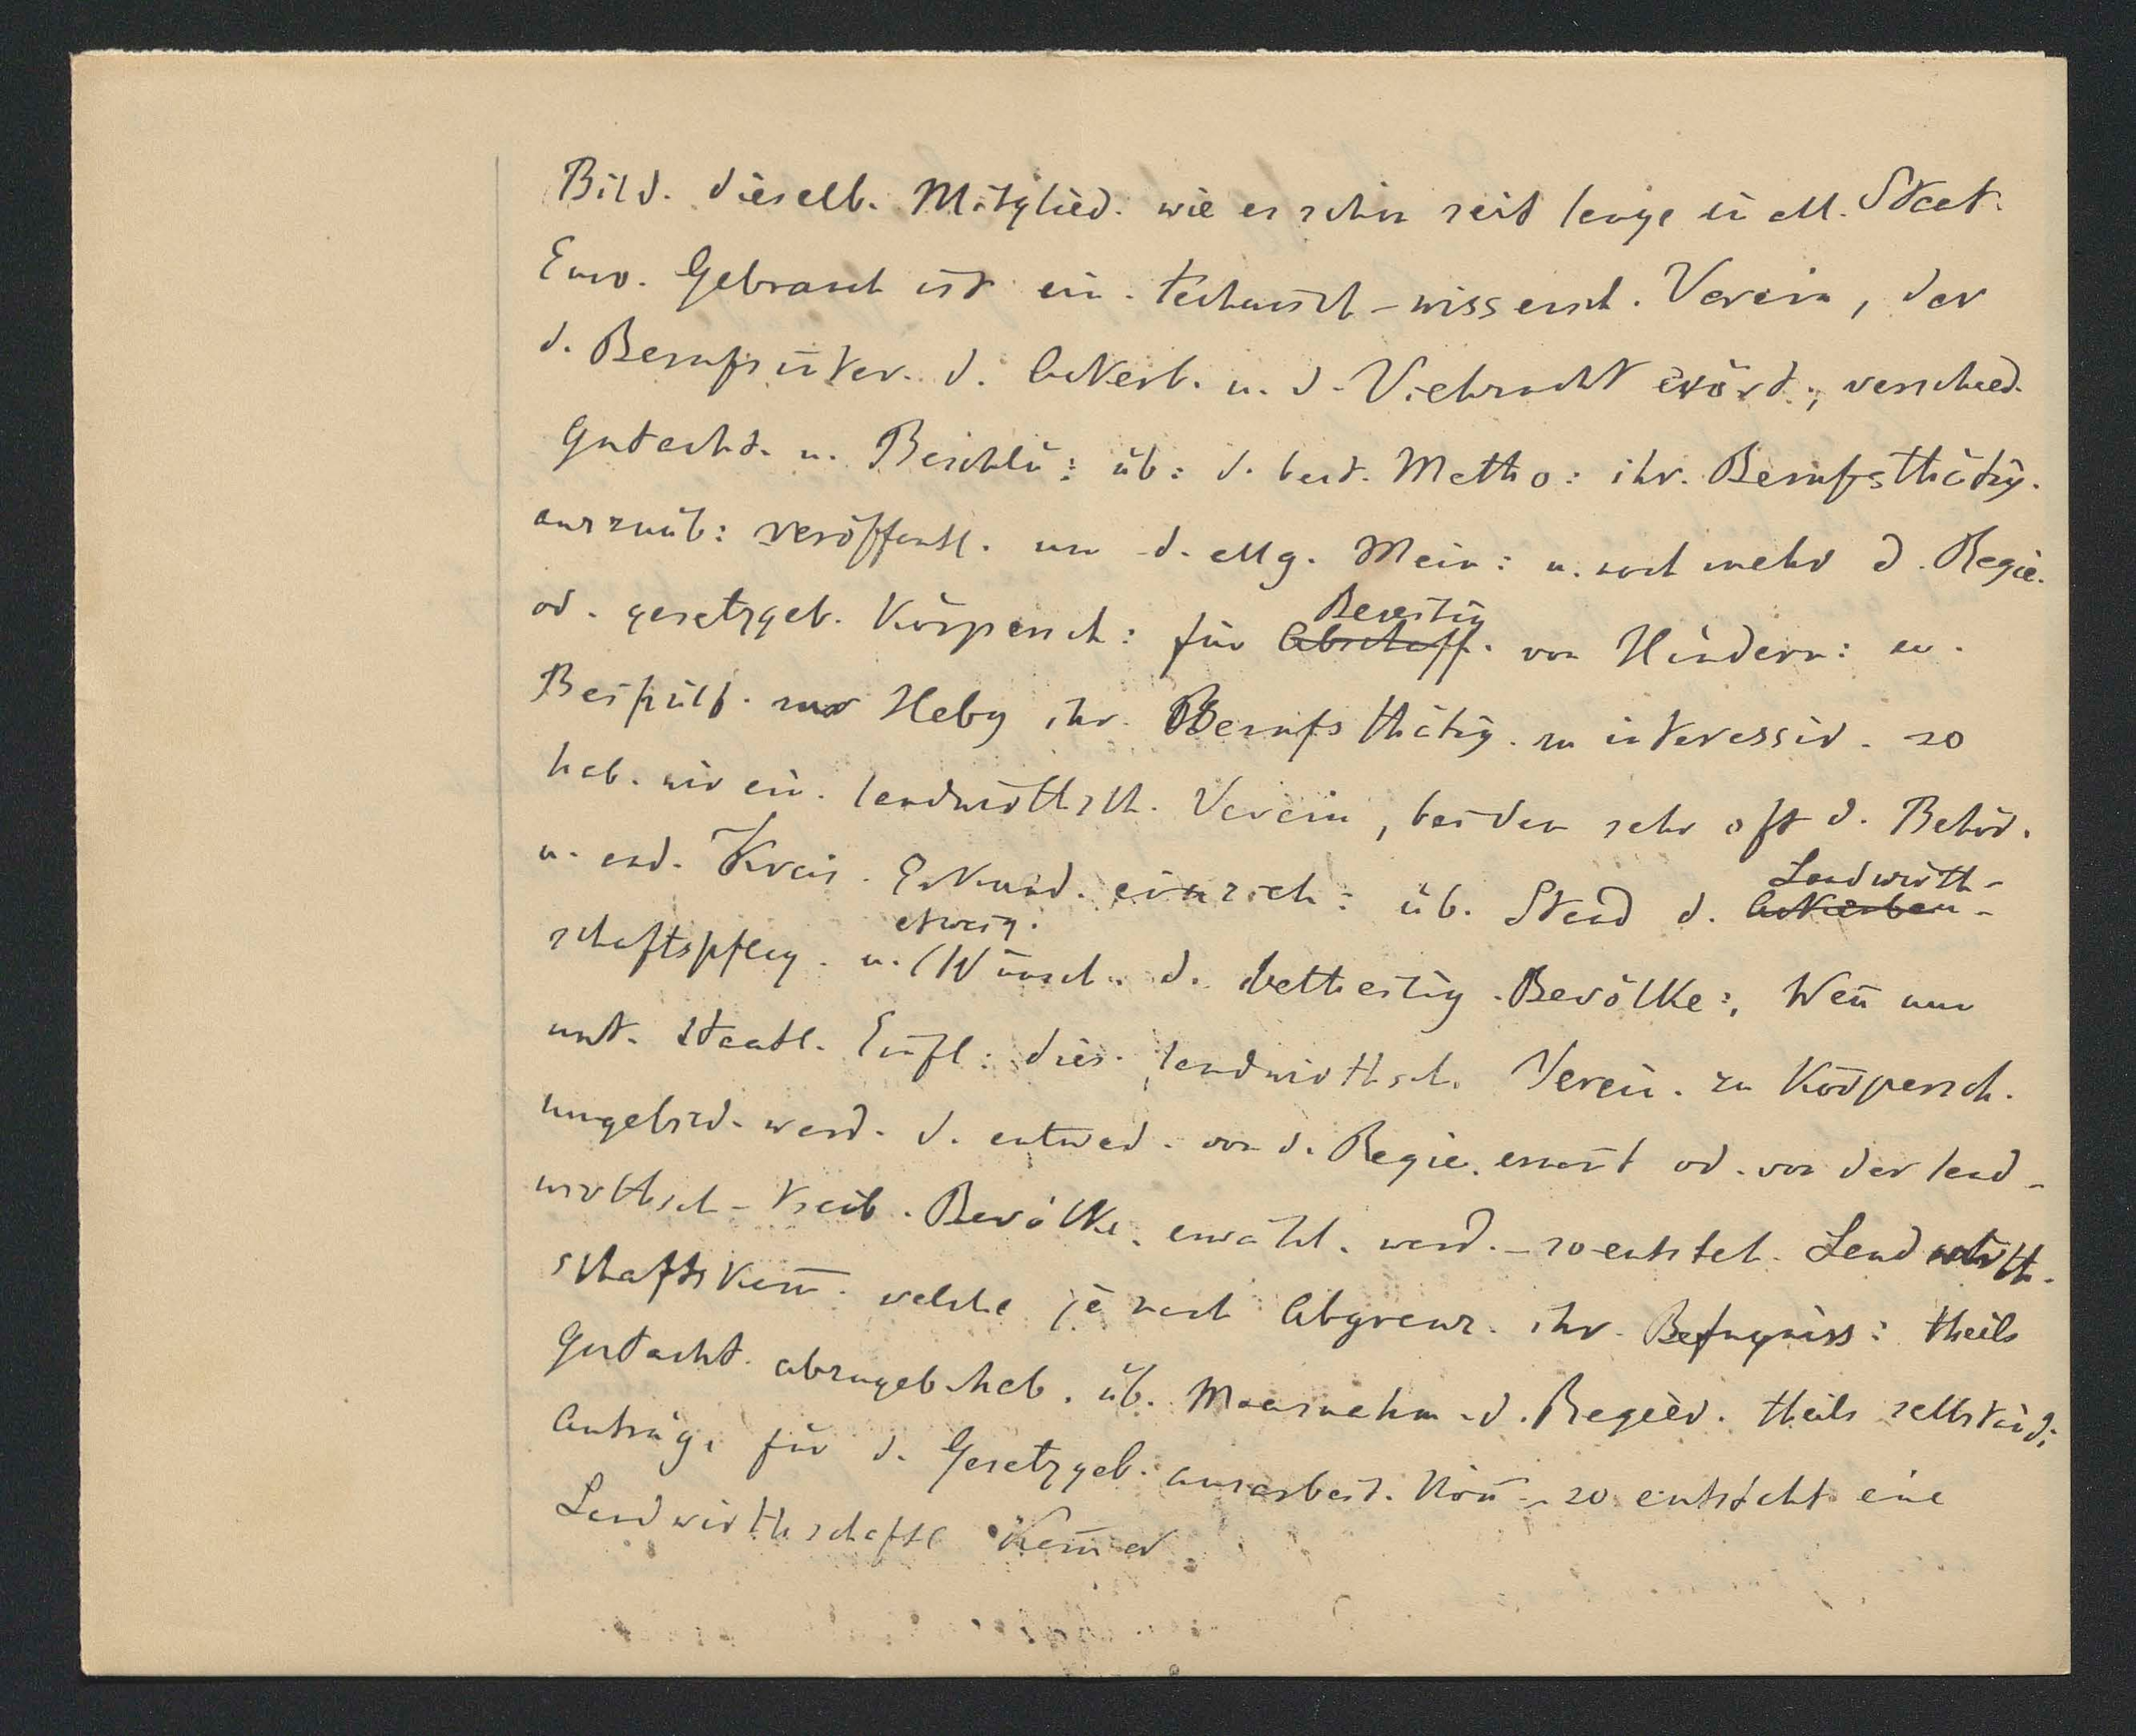 Bild. dieselb. Mitglied. wie es schon seit lange in all. Staat.
Euro. Gebrauch ist ein. technisch-wissensch. Verein, der
d. Berufsinter. d. Ackerb. u. d. Viehzucht erört., verschied.
Gutacht. u. Beschlü: üb: d. best. Metho: ihr. Berufsthätig.
auszuüb: veröffentl. um d. allg. Mein: u. noch mehr d. Regie.
od. gesetzgeb. Körpersch: für Abschaff. von Hindern: en.
Beseitig
Beihülf. zur Hebg ihr. Berufsthätig. zu interessir. so
hab. wir ein. landwirthsch. Verein, bei dem sehr oft d. Behörd.
u. and. Kreis. Erkund. einzieh: üb. Stand d. Ackerbau-
Landwirth-
schaftspfleg. u. Wünsch. d. betheilig. Bevölke:, Wen̄ nun
etwaig.
unt. staatl. Einfl: dies. landwirthsch. Verein. zu Körpersch.
umgebild. werd. d. entwed. von d. Regie. ernan̄t od. von der land-
wirthsch-treib. Bevölke. erwählt. werd. - so entsteh. Landwirth-
schaftskam̄. welche je nach Abgrenz. ihr. Befugniss: theils
Gutacht. abzugeb. hab. üb. Maasnahm. d. Regier. theils selbständ:
Anträge für d. Gesetzgeb. ausarbeit. kön̄ - so entsteht eine
Landwirthschaftl Kam̄er